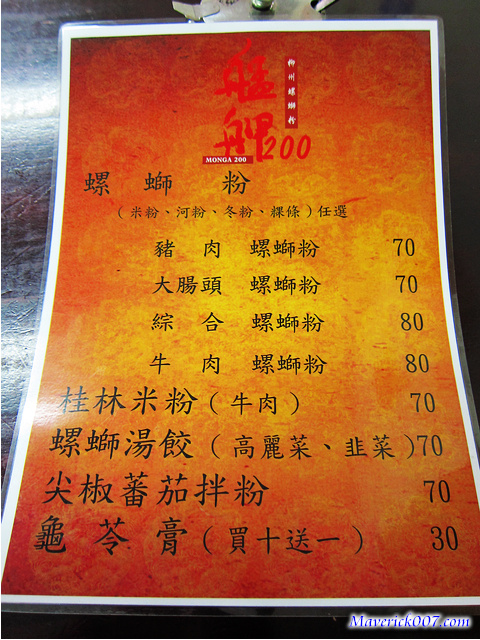 柳州螺螄粉
艋舺200
MONGA 200
螺螄粉
（米粉、河粉、冬粉、粿條）任選
豬肉 螺螄粉 70
大腸頭 螺螄粉 70
綜合 螺螄粉 80
牛肉 螺螄粉 80
桂林米粉（牛肉） 70
螺螄湯餃（高麗菜、韭菜）70
尖椒蕃茄拌粉 70
龜苓膏（買十送一） 30
Maverick007.com